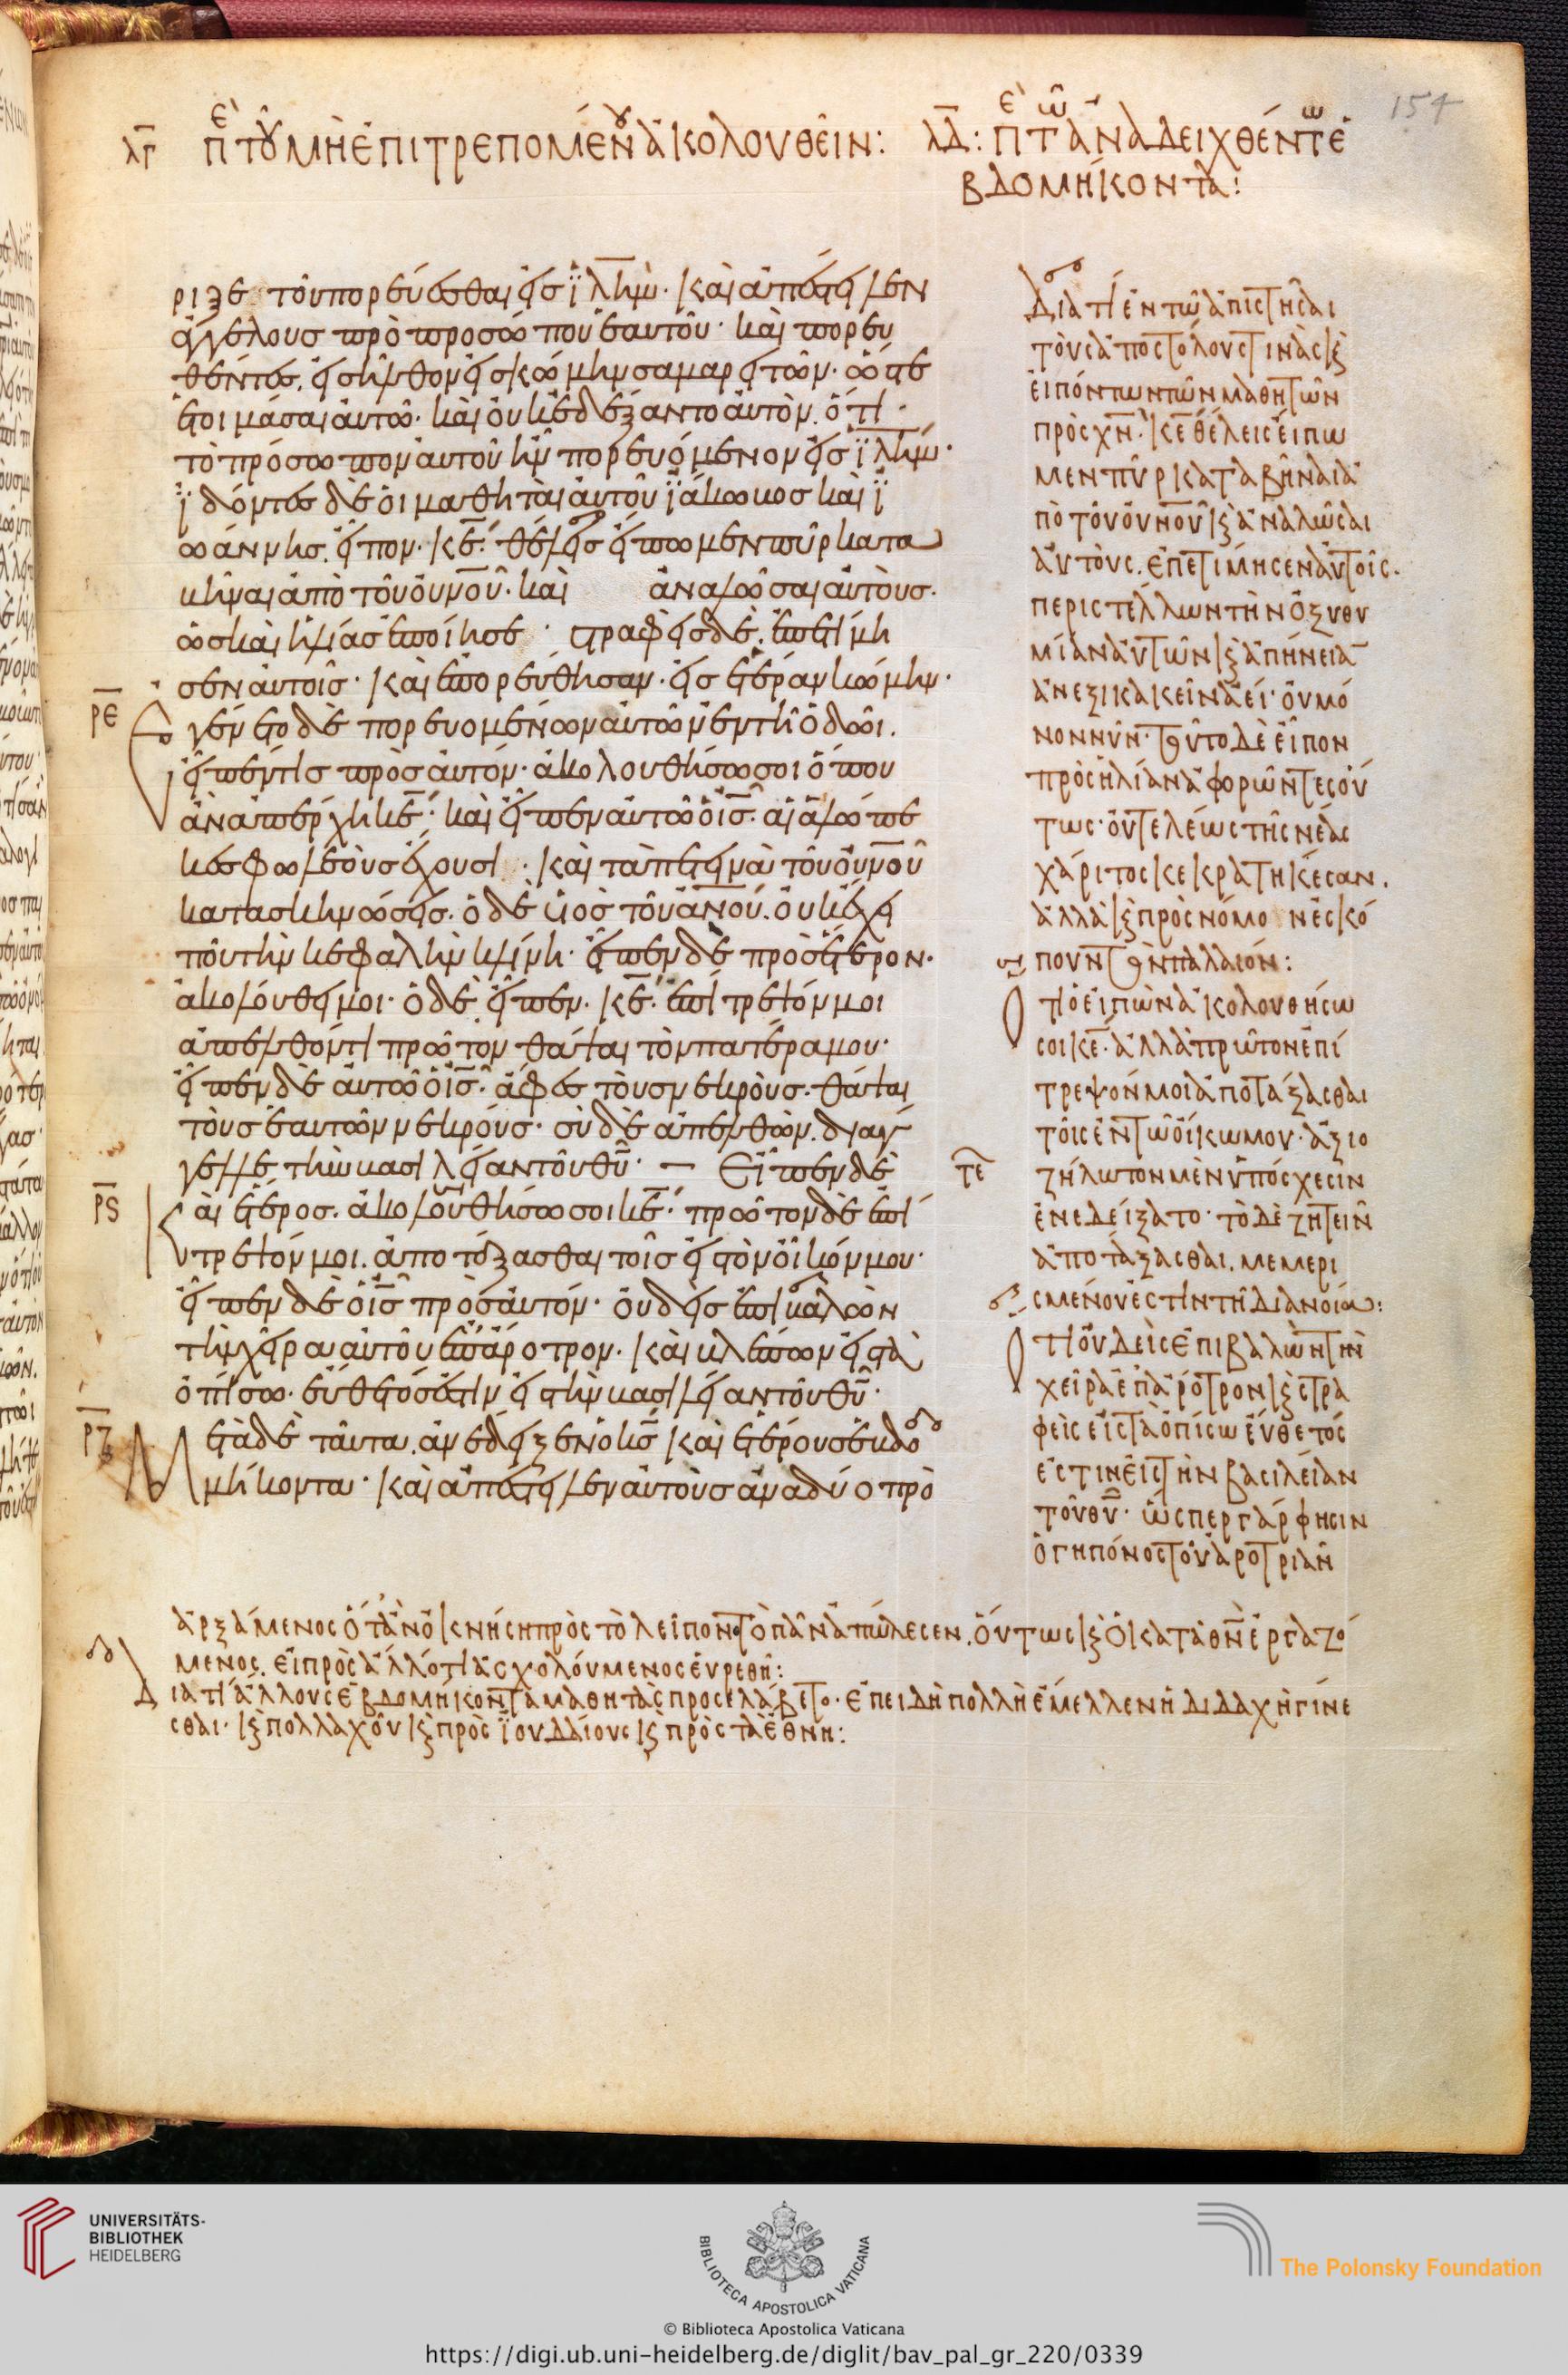 154
λγ πε τοῦ μὴ ἐπιτρεπομένου ἀκολουθεῖν: λδ: πε τῶν ἀναδειχθέντων ἑ
βδομήκοντα:
ριζε τοῦ πορεύεσθαι εἰς ϊλημ· καὶ ἀπέστειλεν
ἀγγέλους πρὸ προσώπου ἑαυτοῦ· καὶ πορευ
θέντες. εἰσῆλθον εἰς κώμην σαμαρειτῶν· ὥστε
ἑτοιμάσαι αὐτῶ· καὶ οὐκ ἐδέξαντο αὐτὸν. ὅτι
τὸ πρόσωπον αὐτοῦ ἦν πορευόμενον εἰς ϊλημ·
ϊδόντες δὲ οἱ μαθηταὶ αὐτοῦ ϊάκωβος καὶ ϊ
ωάννης. εἶπον· κε· θέλεις εἴπωμεν πῦρ κατα
βῆναι ἀπὸ τοῦ οὐνοῦ· καὶ ἀναλῶσαι αὐτοὺς·
ὡς καὶ ἠλίας ἐποίησε· στραφεὶς δὲ. ἐπετίμη
σεν αὐτοῖς· καὶ ἐπορεύθησαν. εἰς ἑτέραν κώμην·
ρε
Εγένετο δὲ πορευομένων αὐτῶν ἐν τῆ ὁδῶι.
εἶπέν τις πρὸς αὐτόν· ἀκολουθήσω σοι ὅπου
ἂν ἀπέρχη κε· καὶ εἶπεν αὐτῶ ὁ ις· αἱ ἀλώπε
κες φωλεοὺς ἔχουσι· καὶ τὰ πετεινὰ τοῦ οὐνοῦ
κατασκηνώσεις. ὁ δὲ υἱὸς τοῦ ανου. οὐκ ἔχει
ποῦ τὴν κεφαλὴν κλίνη· εἶπεν δὲ πρὸς ἕτερον·
ἀκολούθει μοι· ὁ δὲ εἶπεν. κε· ἐπίτρεψόν μοι
ἀπελθόντι πρῶτον θάψαι τὸν πατέρα μου·
εἶπεν δὲ αὐτῶ ὁ ις· ἄφες τοὺς νεκροὺς. θάψαι
τοὺς ἑαυτῶν νεκρούς· σὺ δὲ ἀπελθὼν. διάγ
γελλε τὴν βασιλείαν τοῦ θυ· Εἶπεν δὲ
ρϛ
καὶ ἕτερος. ἀκολουθήσω σοι κε· πρῶτον δὲ ἐπί
τρεψόν μοι. ἀποτάξασθαι τοῖς εἰς τὸν οἶκόν μου·
εἶπεν δὲ ὁ ις πρὸς αὐτόν· οὐδεὶς ἐπιβαλὼν
τὴν χεῖρα αὐτοῦ ἐπ' ἄροτρον. καὶ βλέπων εἰς τὰ
ὀπίσω. εὔθετός ἐστιν εἰς τὴν βασιλείαν τοῦ θυ·
ρζ
Μετὰ δὲ ταῦτα. ἀνέδειξεν ὁ κς καὶ ἑτέρους ἑβδο
μήκοντα· καὶ ἀπέστειλεν αὐτοὺς ἀνὰ δύο πρὸ
Διατί ἐν τῶ ἀπιστῆσαι
τοὺς ἀποστόλους τινὰς κ
εἰπόντων τῶν μαθητῶν
πρὸς χν· κε θέλεις εἴπω
μεν πῦρ καταβῆναι ἀ
πὸ τοῦ οὐνοῦ κ ἀναλῶσαι
αὐτοὺς. ἐπετίμησεν αὐτοῖς·
περιστέλλων τὴν ὀξυθυ
μίαν αὐτῶν κ ἀπήνεια
ἀνεξικακεῖν ἀεί· οὐ μό
νον νῦν· τοῦτο δὲ εἶπον
πρὸς ἠλίαν ἀφορῶντες οὐ
τως· οὐ τελέως τῆς νέας
χάριτος κεκρατηκέσαν.
ἀλλὰ κ πρὸς νόμον ἐσκό
πουν τὸν παλαιόν:
τί ὁ εἰπὼν ἀκολουθήσω
σοι κε· ἀλλὰ πρῶτον ἐπί
τρεψόν μοι ἀποτάξασθαι
τοῖς ἐν τῶ οἴκω μου· ἀξιο
τε ζήλωτον μὲν ὑπόσχεσιν
ἐνεδείξατο· τὸ δὲ ζητεῖν
ἀποτάξασθαι. μεμερι
σμένου ἐστὶν τῆ διανοία:
τί οὐδεὶς ἐπιβαλὼν τὴν
χεῖρα ἐπ' ἄροτρον κ στρα
φεὶς εἰς τὰ ὀπίσω εὔθετός
ἐστιν εἰς τὴν βασιλείαν
τοῦ θυ· ὥσπερ γάρ φησιν
ὁ γηπόνος τοῦ ἀροτριᾶν
ἀρξάμενος ὅταν ὀκνήση πρὸς τὸ λεῖπον τὸ πᾶν ἀπώλεσεν. οὕτως κ ὁ κατὰ θν ἐργαζό
μενος. εἰ πρὸς ἄλλό τι ἀσχολούμενος εὑρεθῆ:
Διατί ἄλλους ἑβδομήκοντα μαθητὰς προσελάβετο· ἐπειδὴ πολλὴ ἔμελλεν ἡ διδαχὴ γίνε
σθαι· κ πολλαχοῦ κ πρὸς ϊουδαίους κ πρὸς τὰ ἔθνη:
UNIVERSITÄTS-
BIBLIOTHEK
HEIDELBERG
BIBLIOTECA APOSTOLICA VATICANA
The Polonsky Foundation
© Biblioteca Apostolica Vaticana
https://digi.ub.uni-heidelberg.de/diglit/bav_pal_gr_220/0339